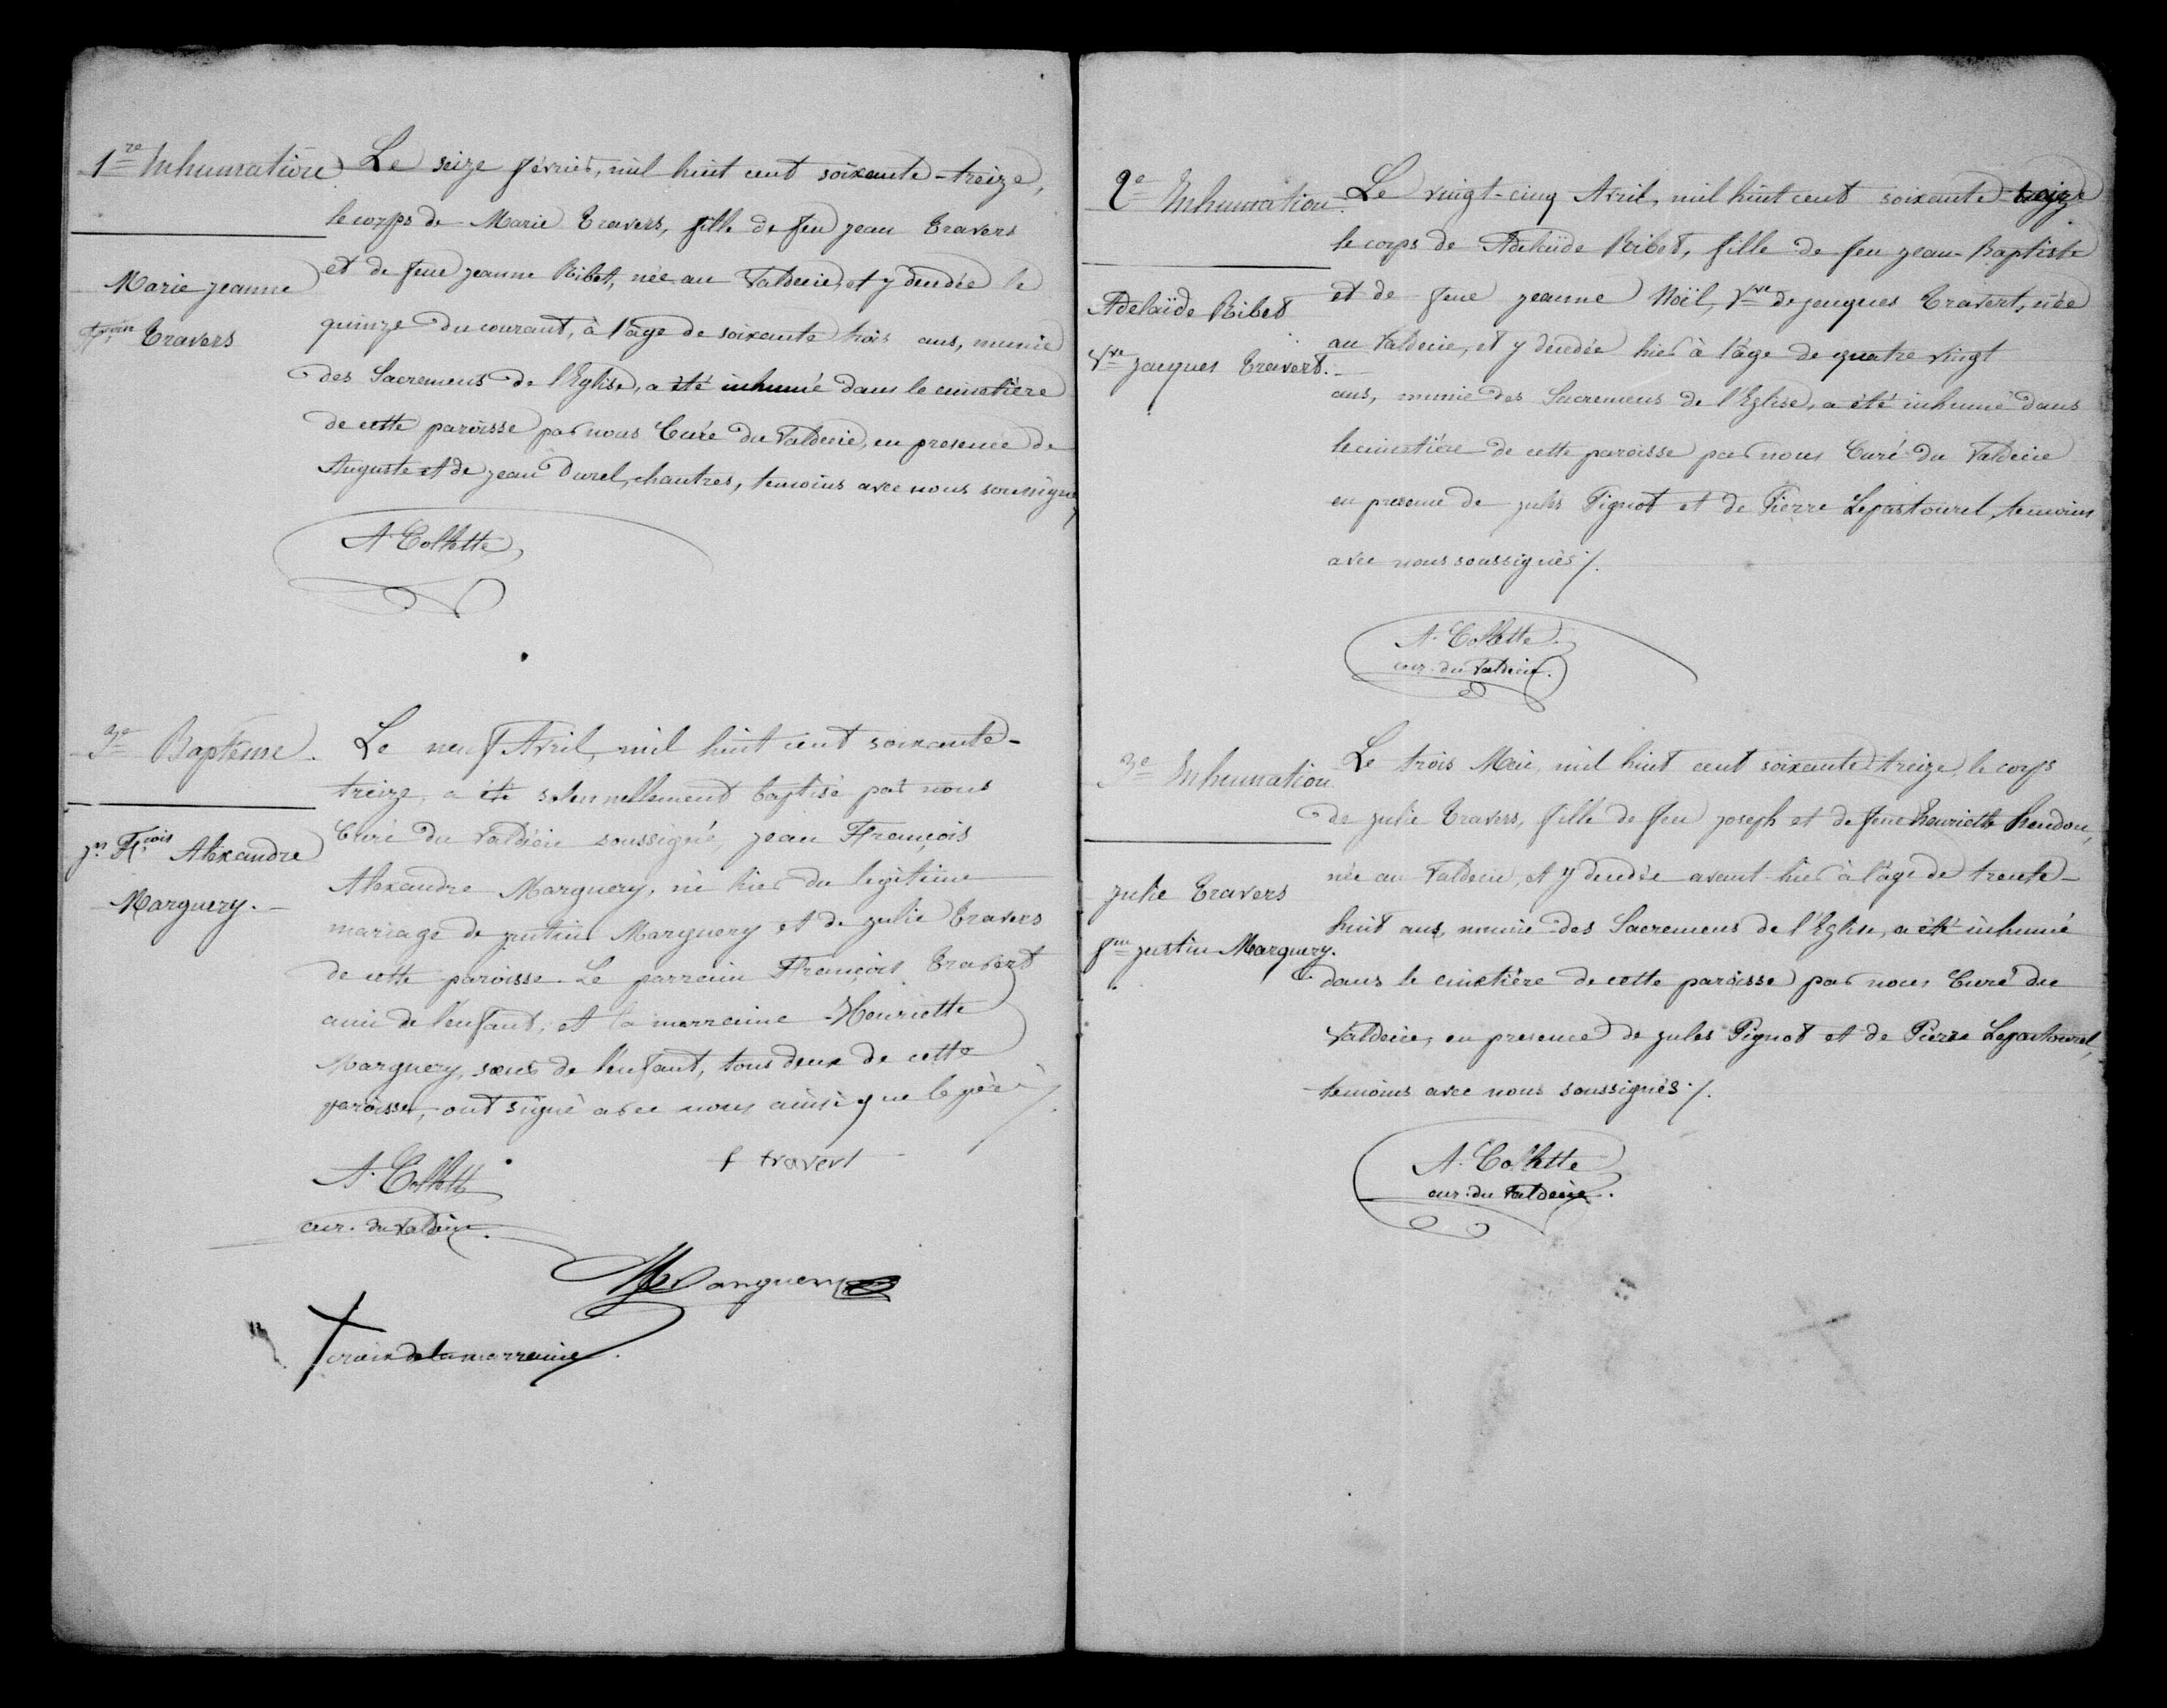 1re Inhumation
Marie jeanne
Travers
Le seize février, mil huit cent soixante-treize,
le corps de Marie Travers, fille de feu jean Travers
et de feue jeanne Ribet, née au Valdecie, et y décédée le
quinze du courant, à l'âge de soixante trois ans, munie
des Sacremens de l'Eglise, a été inhumé dans le cimetière
de cette paroisse par nous Curé du Valdecie, en presence de
Auguste et de jean Durel, chantres, temoins avec nous soussignés
A. Collette
3e Baptême.
jn Fçois Alexandre
Marguery.
Le neuf Avril, mil huit cent soixante-
treize, a été solennellement baptisé par nous
Curé du Valdécie soussigné, jean François
Alexandre Marguery, né hier du legitime
mariage de justin Marguery et de julie Travers
de cette paroisse. Le parrain François Travert
ami de l'enfant, et la marraine Henriette
Marguery, sœur de l'enfant, tous deux de cette
paroisse, ont signé avec nous ainsi que le père /.
A. Collette
cur. du Valdecie.
f travert
Marguery
croix de la marraine.
2e Inhumation.
Adelaïde Ribet
Vve jacques Travert.
Le vingt-cinq Avril, mil huit cent soixante treize
le corps de Adelaïde Ribet, fille de feu jean-Baptiste
et de feue jeanne Noël, Vve de jacques Travert, née
au Valdecie, et y décédée hier à l'âge de quatre vingt
ans, munie des Sacremens de l'Eglise, a été inhumé dans
le cimetière de cette paroisse par nous Curé du Valdecie
en presence de jules Pignot et de Pierre Lepastourel, temoins
avec nous soussignés /.
A. Collette.
cur. du Valdecie.
3e Inhumation
julie Travers
fme justin Marguery.
Le trois Mai, mil huit cent soixante treize, le corps
de julie Travers, fille de feu joseph et de feue henriette
née au Valdecie, et y décédée avant-hier à l'âge de trente-
huit ans, munie des Sacremens de l'Eglise, a été inhumé
dans le cimetière de cette paroisse par nous Curé du
Valdecie, en presence de jules Pignot et de Pierre Lepastourel,
temoins avec nous soussignés /.
A. Collette
cur. du Valdecie.